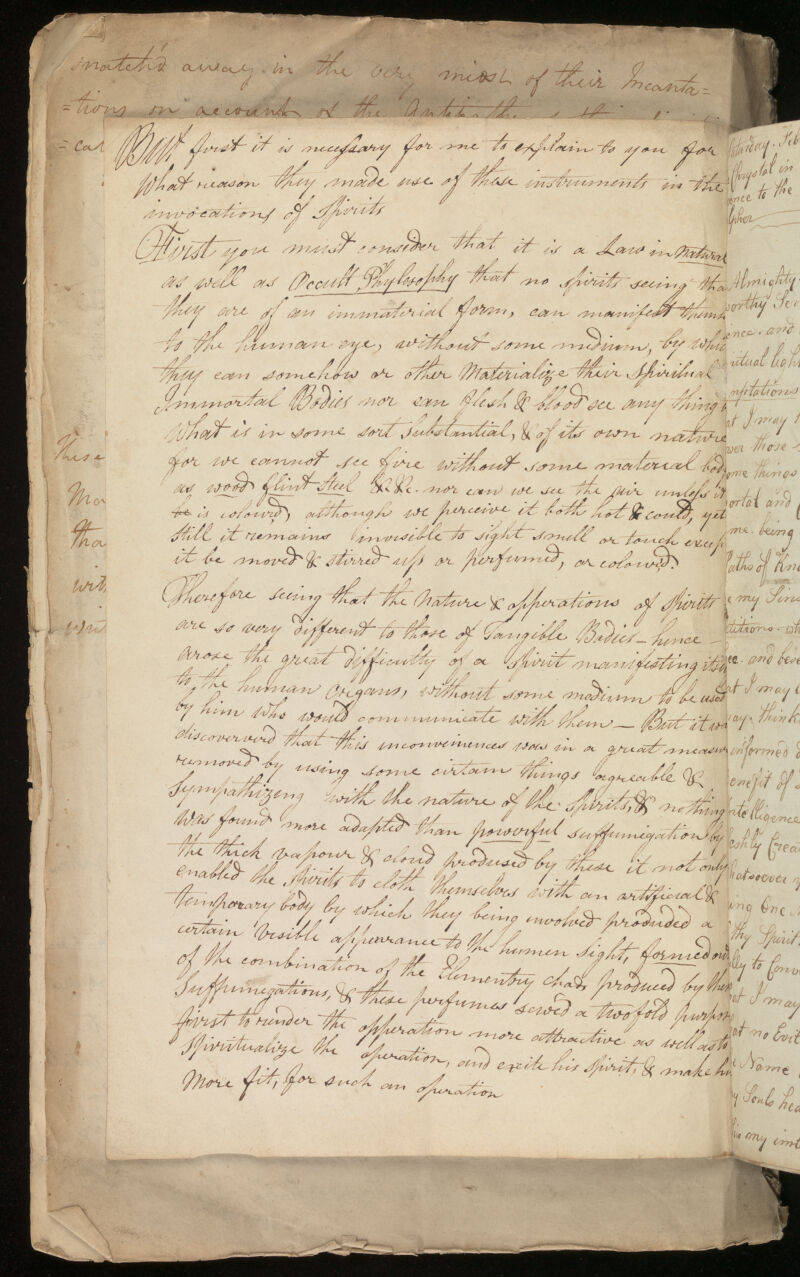 snatch'd away in the very midst of their Incanta=
=tions on account of the
=cal
But first it is necessary for me to explain to you for
what reason they made use of these instruments in the
invocations of Spirits
First you must consider that it is a Law in Natural
as well as Occult Phylosophy that no spirits seeing tha
they are of an immaterial form, can manifest thems
to the human eye, without some medium, by whic
they can somehow or other Materialize their Spiritual
Immortal Bodies nor can flesh & blood see any thing b
what is in some sort Substantial, & of its own nature
for we cannot see fire without some material body
as wood flint steel &c &c. nor can we see the air unless it
is colour'd, although we perceive it both hot & could, yet
still it remains invisible to sight smell or touch excep
it be moved & stirred up or perfumed, or colour'd.
Therefore seeing that the Nature & opperations of Spirits
are so very different to those of Tangible Bodies – hence –
arose the great difficulty of a spirit manifesting itse
to the human organs, without some medium to be used
by him who would communicate with them – But it wa
discoververd that this inconveiniences was in a great measur
rumoved by using some cirtain things agreable &
Sympathizeng with the nature of the Spirits, & nothing
was found more adapted than powerful suffumigation by
the thick vapour & cloud prodused by these it not only
enabled the Spirits to cloth themselves with an artificial &
temporary body by which they being involved produded a
certain visible appearance to the humen sight, formed ou
of the combination of the Elementry chaos produced by these
Suffumigations, & these perfumes served a twofold purpos
first to runder the opperation more attractive as well as to
Spiritualize the operation, and excite his Spirit, & make hi
more fit, for such an operation
These
Ma
tha
with
Saturday. Feb
Chrystal in
ence to the
Almighty
worthy Ser
ence. and
ritual ligh
mptations
at I may
wer those
ome things
ortal and
me. being
Paths of Kno
e my Since
ee. and
at I may
may. think
informed
enefit of
ntelligence
eshly Crea
hatsoever
ing One
thy Spirit
lly to Conv
at I may
at no Evil
e Name
y Souls hea
his my